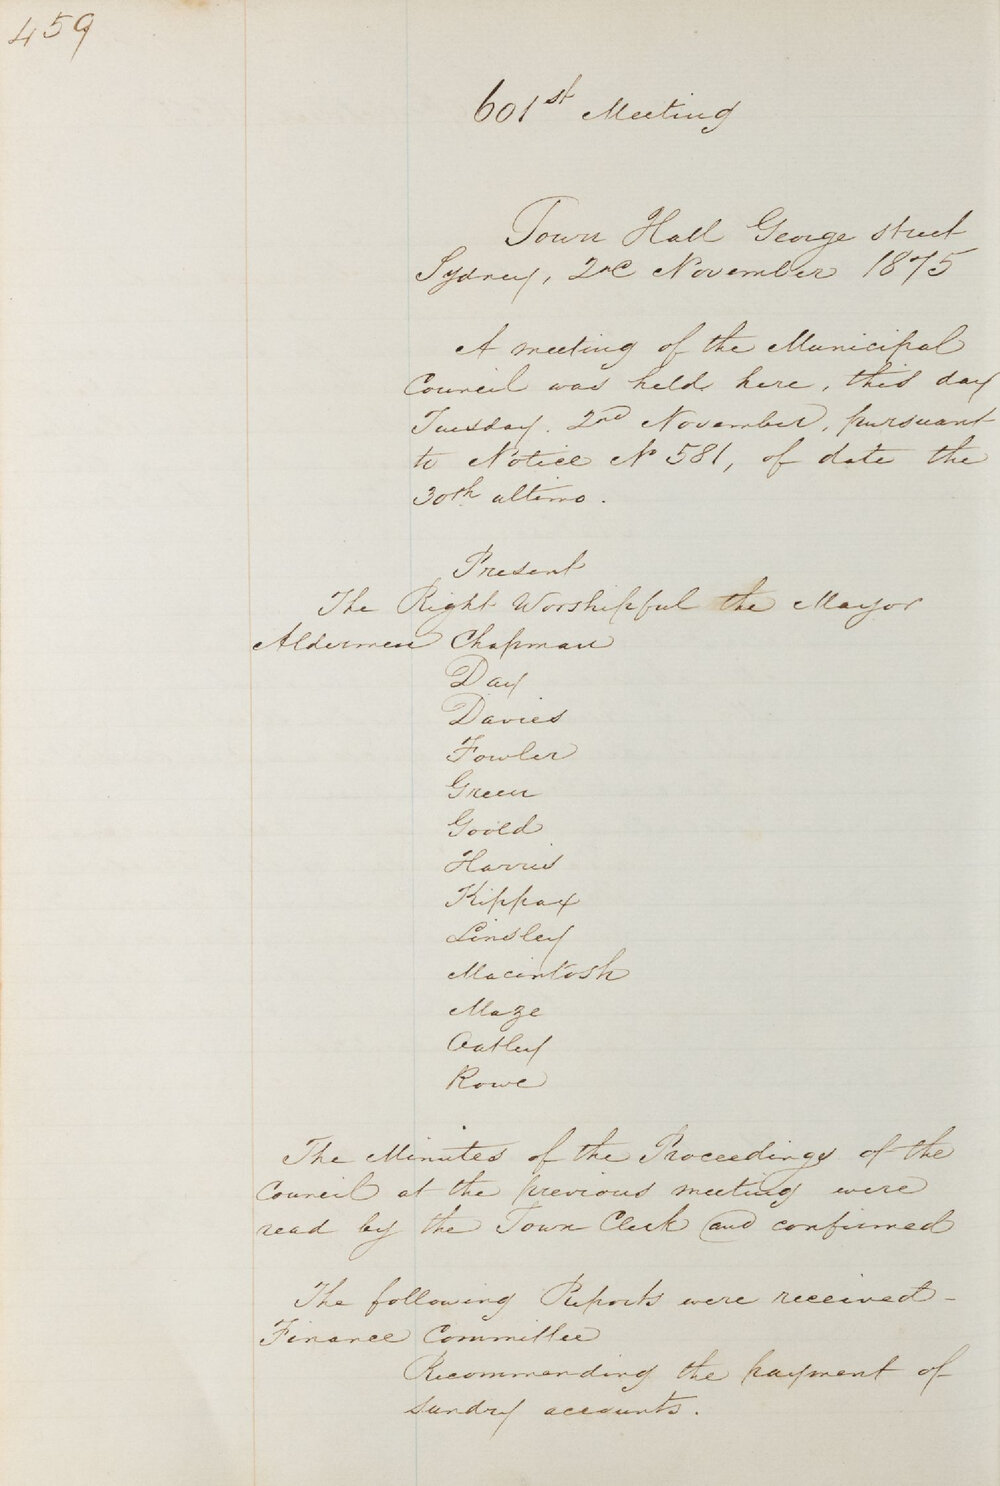 459
601st Meeting
Town Hall George street
Sydney, 2nd November 1875
A meeting of the Municipal
Council was held here, this day
Tuesday. 2nd November, pursuant
to Notice No 581, of date the
30th ultimo.
Present
The Right Worshipful the Mayor
Aldermen Chapman
Day
Davies
Fowler
Green
Goold
Harris
Kippax
Linsley
Macintosh
Maze
Oatley
Rowe
The Minutes of the Proceedings of the
Council at the previous meeting were
read by the Town Clerk and confirmed
The following Reports were received -
Finance Committee
Recommending the payment of
sundry accounts.